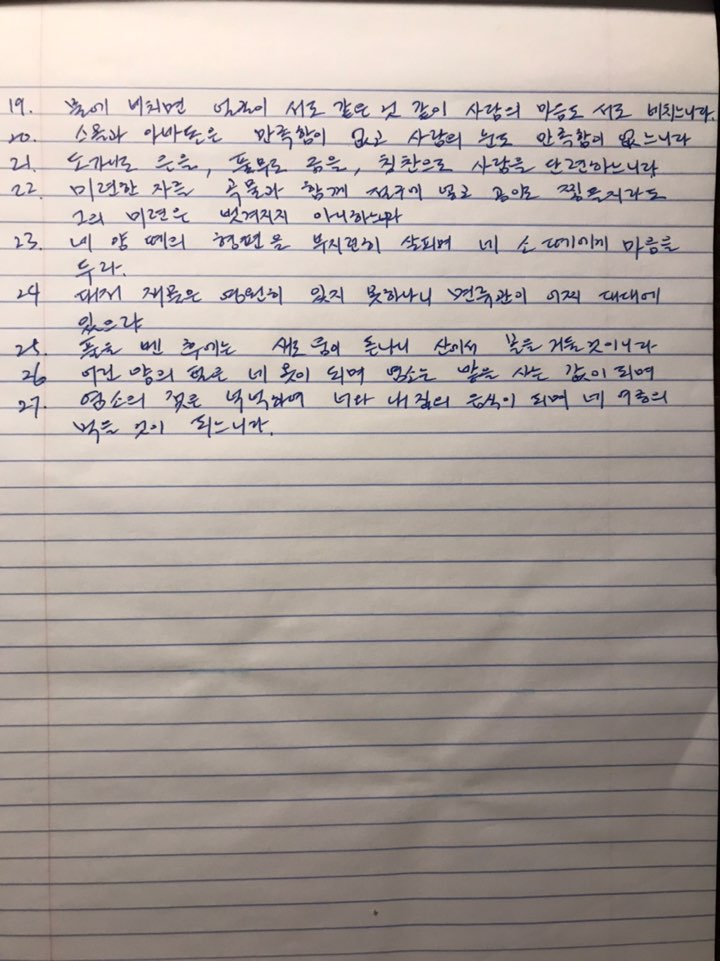 19. 물에 비치면 얼굴이 서로 같은 것 같이 사람의 마음도 서로 비치느니라
20. 스올과 아바돈은 만족함이 없고 사람의 눈도 만족함이 없느니라
21. 도가니로 은을, 풀무로 금을, 칭찬으로 사람을 단련하느니라
22. 미련한 자를 곡물과 함께 절구에 넣고 공이로 찧을지라도
그의 미련은 벗겨지지 아니하느니라
23. 네 양 떼의 형편을 부지런히 살피며 네 소 떼에게 마음을
두라.
24 대저 재물은 영원히 있지 못하나니 면류관이 어찌 대대에
있으랴
25. 풀을 벤 후에는 새로 움이 돋나니 산에서 꼴을 거둘 것이니라
26 어린 양의 털로 네 옷이 되며 염소는 밭을 사는 값이 되며
27. 염소의 젖은 넉넉하여 너와 네 집의 음식이 되며 네 여종의
먹을 것이 되느니라.